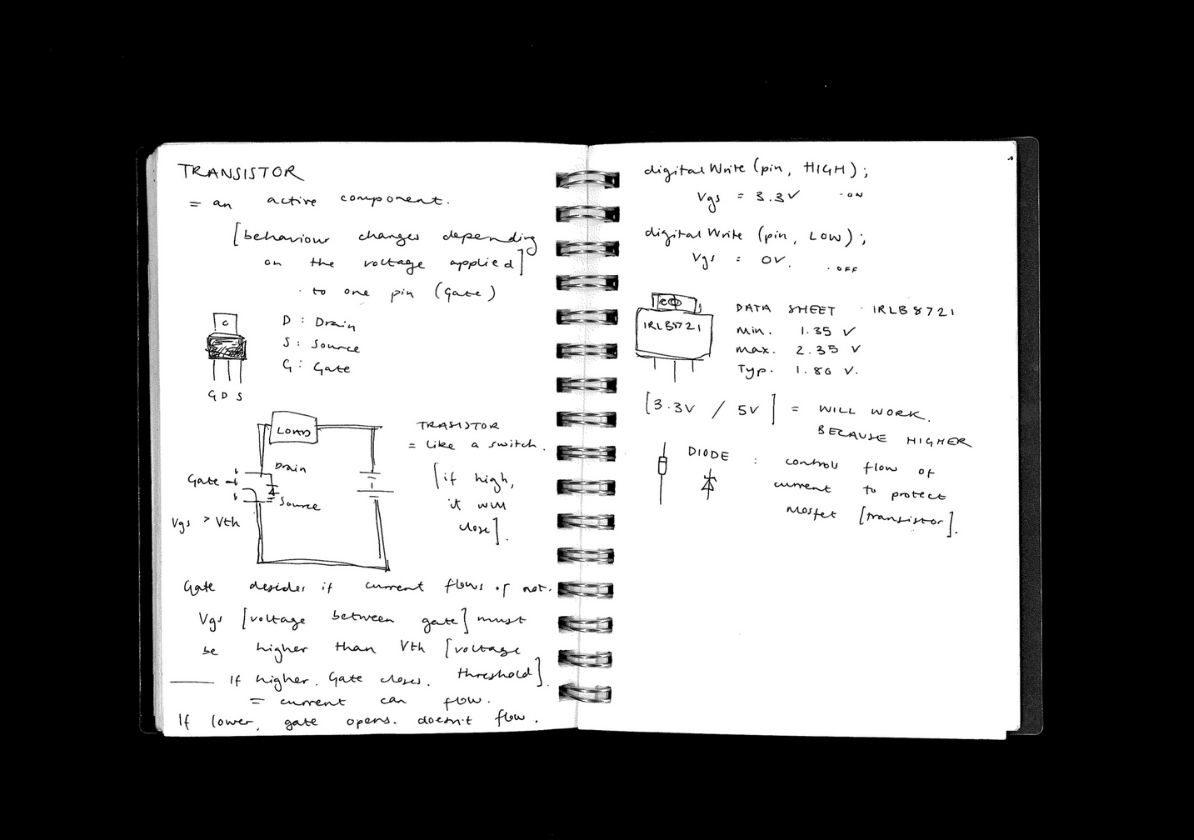 TRANSISTOR
= an active component.
[behaviour changes depending
on the voltage applied]
· to one pin (Gate)
D : Drain
S : Source
G : Gate
G D S
LOAD
Drain
Gate
Source
Vgs > Vth
TRANSISTOR
= like a switch.
[if high,
it will
close].
Gate desides if current flows or not.
Vgs [voltage between gate] must
be higher than Vth [voltage
threshold].
If higher. Gate closes.
= current can flow.
If lower, gate opens. doesn't flow.
digitalWrite (pin, HIGH);
Vgs = 3.3V · ON
digitalWrite (pin, LOW);
Vgs = 0V. · OFF
IRLB8721
DATA SHEET · IRLB8721
Min. 1.35 V
Max. 2.35 V
Typ. 1.80 V.
[3.3V / 5V] = WILL WORK.
BECAUSE HIGHER
DIODE : controls flow of
current to protect
Mosfet [transistor].